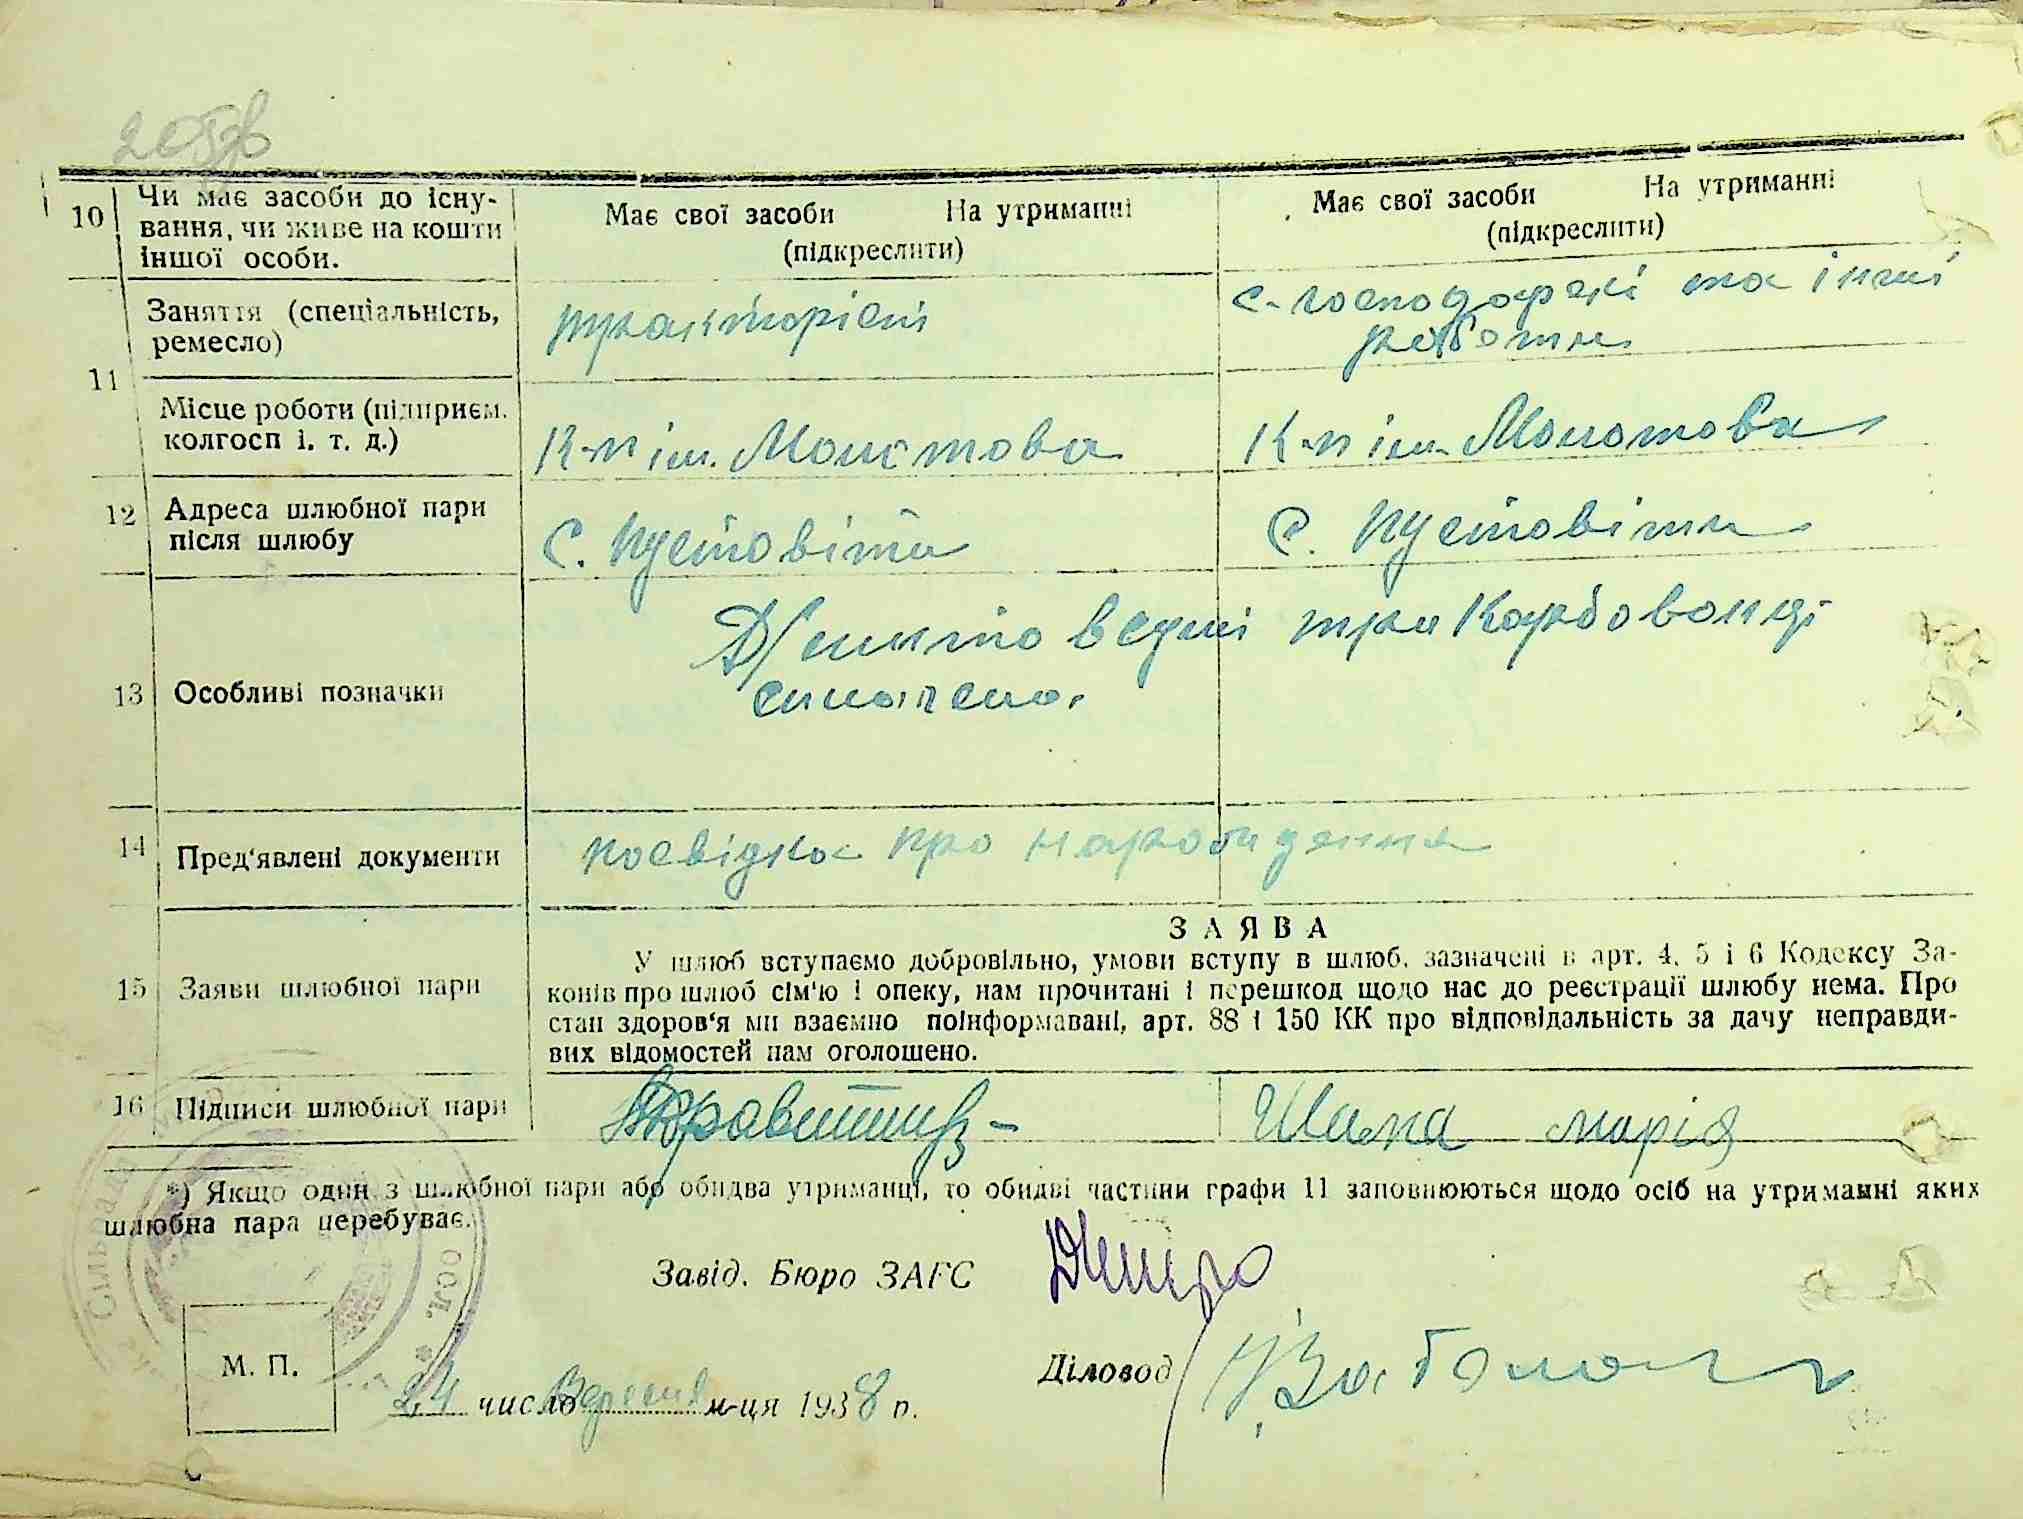 205зв
10 Чи має засоби до існу-
вання, чи живе на кошти
іншої особи.
Має свої засоби На утриманні
(підкреслити)
Має свої засоби На утриманні
(підкреслити)
11 Заняття (спеціальність,
ремесло)
тракторіст
с-господарскі та інші
роботи
Місце роботи (підприєм.
колгосп і. т. д.)
К-п ім. Молотова
К-п ім. Молотова
12 Адреса шлюбної пари
після шлюбу
с. Пустовіти
с. Пустовіти
13 Особливі позначки
Д/мито в сумі три карбованці
сплачено.
14 Пред'явлені документи
посвідка про народження
15 Заяви шлюбної пари
ЗАЯВА
У шлюб вступаємо добровільно, умови вступу в шлюб, зазначені в арт. 4, 5 і 6 Кодексу За-
конів про шлюб сім'ю і опеку, нам прочитані і перешкод щодо нас до реєстрації шлюбу нема. Про
стан здоров'я ми взаємно поінформавані, арт. 88 і 150 КК про відповідальність за дачу неправди-
вих відомостей нам оголошено.
16 Підписи шлюбної пари
Шима марія
*) Якщо один з шлюбної пари або обидва утриманці, то обидві частини графи 11 заповнюються щодо осіб на утриманні яких
шлюбна пара перебуває.
Завід. Бюро ЗАГС
Діловод
М. П.
24 число Вересня м-ця 1938 р.